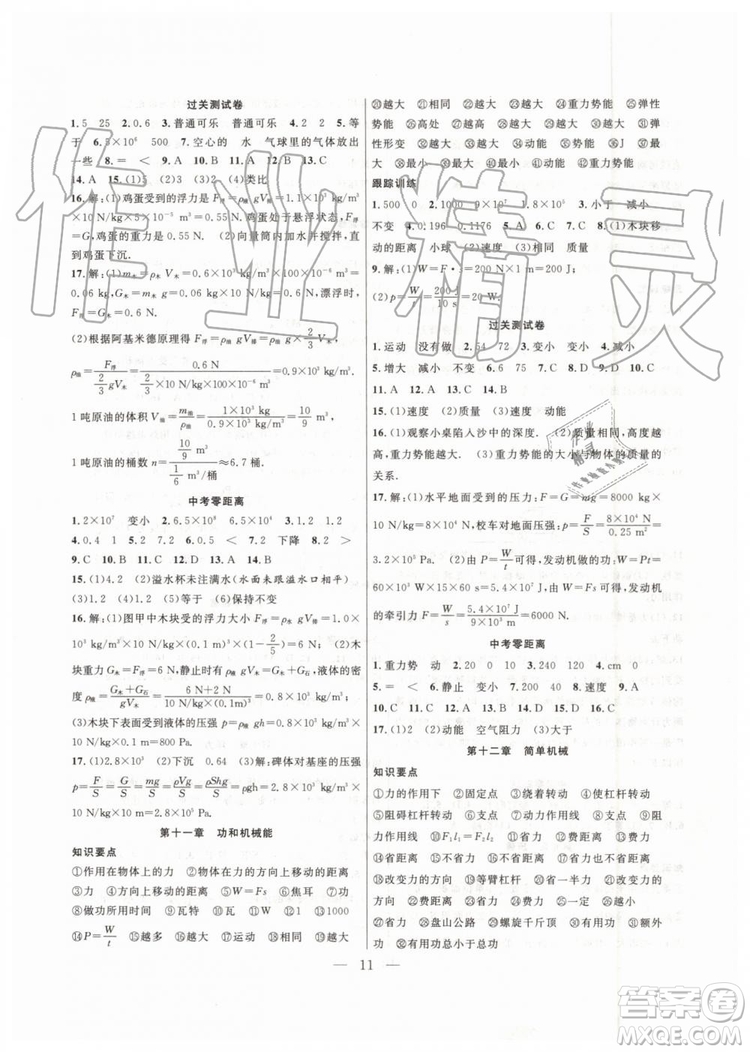 过关测试卷
1.5 25 2.0.6 3.普通可乐 普通可乐 4.2 2 5.等
于 6.5×10⁶ 500 7.空心的 水 气球里的气体放出
一些 8.= < 9.A 10.A 11.B 12.B 13.C
14.A 15.(1)5 (2)3 (4)类比
N/kg×5×10⁻⁵ m³=0.55 N,鸡蛋处于悬浮状态,F浮
=G,鸡蛋的重力是0.55 N. (2)向量筒内加水并搅拌,直
到鸡蛋下沉.
0.06 kg,G木=m木g=0.06 kg×10 N/kg=0.6 N,漂浮时,F浮
=G木=0.6 N.
(2)根据阿基米德原理得 F浮=ρ液gV排=ρ液g×2/3
V木,ρ液=F浮/(2/3 gV木)=0.6 N/(2/3×10 N/kg×1×10⁻⁴ m³)=0.9×10³ kg/m³
1吨原油的体积 V油=m油/ρ油=1×10³ kg/(0.9×10³ kg/m³)=10/9 m³
1吨原油的桶数 n=(10/9 m³)/(1/6 m³/桶)≈6.7桶
中考零距离
1.2×10⁷ 变小 2.6.5×10⁶ 6.5×10³ 3.2 1.2
4.0.4 1 5.2 2×10³ 6.< < 7.下降 8.> >
9.C 10.B 11.C 12.D 13.A 14.B
15.(1)4.2 (2)溢水杯未注满水(水面未跟溢水口相平)
(3)1.2 (5)等于 (6)保持不变
16.解:(1)图甲中木块受的浮力大小 F浮=ρ水gV排=1.0×
10³ kg/m³×10 N/kg×(0.1 m)³×(1-2/5)=6 N (2)木
块重力 G木=F浮=6 N,静止时 F浮=G木+G石,液体的密
度 ρ液=(G木+G石)/gV木=(6 N+2 N)/(10 N/kg×(0.1m)³)=0.8×10³ kg/m³
(3)木块下表面受到液体的压强 p=ρ液gh=0.8×10³ kg/m³×
10 N/kg×0.1 m=800 Pa
17.(1)2.8×10³ (2)下沉 0.64 (3)解:碑体对基座的压强
p=F/S=G/S=mg/S=ρVg/S=ρShg/S=ρgh=2.8×10³ kg/m³×10
N/kg×1 m=2.8×10⁴ Pa
第十一章 功和机械能
知识要点
①作用在物体上的力 ②物体在力的方向上移动的距离
③力 ④力的方向上移动的距离 ⑤W=Fs ⑥焦耳 ⑦J
⑧做功所用时间 ⑨瓦特 ⑩W ⑪1 ⑫1 ⑬1000
⑭P=W/t ⑮越多 ⑯越大 ⑰运动 ⑱相同 ⑲越大
⑳越大 ㉑相同 ㉒越大 ㉓越大 ㉔重力势能 ㉕弹性
势能 ㉖高处 ㉗越大 ㉘越大 ㉙越大 ㉚越大 ㉛弹
性形变 ㉜越大 ㊳最小 ㊴最大 ㊵最大 ㊶最小
㊷最大 ㊸最小 ㊹最小 ㊵最大 ㊶动能 ㊷重力势能
跟踪训练
1.500 0 2.0 10⁷ 3.小于 4.减小
不变 4.0.196 0.1176 5.A 6.C 7.C 8.(1)木块移
动的距离 小球 (2)速度 (3)相同 质量
9.解:(1)W=F·s=200 N×1 m=200 J,
(2)p=W/t=200 J/10 s=20 W.
过关测试卷
1.运动 没有做 2.54 72 3.变小 变小 4.减小
5.增大 减小 不变
11.A 12.A 13.D 14.B
15.(1)速度 (2)质量 (3)速度 动能
16.(1)观察小桌陷入沙中的深度. (2)质量相同,高度越
高,重力势能越大. (3)重力势能的大小与物体的质量的
关系.
17.解:(1)水平地面受到的压力:F=G=mg=8000 kg
×10 N/kg=8×10⁴ N,校车对地面压强:p=F/S=8×10⁴ N/0.25 m²=
3.2×10⁵ Pa. (2)由 P=W/t 可得,发动机做的功:W=Pt=
60×10³ W×15×60 s=5.4×10⁷ J,由 W=Fs 可得,发动
机的牵引力 F=W/s=5.4×10⁷ J/9×10³ m=6×10³ N
中考零距离
1.重力势 动 2.20 0 10 3.240 120 4.cm 0
5.= < 6.静止 变小 7.200 40 8.速度 9.D
10.C 11.C 12.A 13.D 14.A 15.B 16.C
17.(1)2 (2)动能 空气阻力 (3)大于
第十二章 简单机械
知识要点
①力的作用下 ②固定点 ③绕着转动 ④使杠杆转动
⑤阻碍杠杆转动 ⑥动力作用线 ⑦力臂 ⑧支点 ⑨阻
力作用线 ⑩F₁l₁=F₂l₂ ⑪省力 ⑫费距离 ⑬费力
⑭省距离 ⑮不省力 ⑯不费距离 ⑰不省力
⑱改变力的方向 ⑲等臂杠杆 ⑳省一半力 ㉑费距离
㉒改变力的方向 ㉓省力 ㉔改变力的方向 ㉕费距离
㉖省力 ㉗盘山公路 ㉘螺旋千斤顶 ㉙有用功 ㉚额外
功 ㉛有用功 ㉜有用功总小于总功
— 11 —
作业精灵
答案圈
MXQE.COM